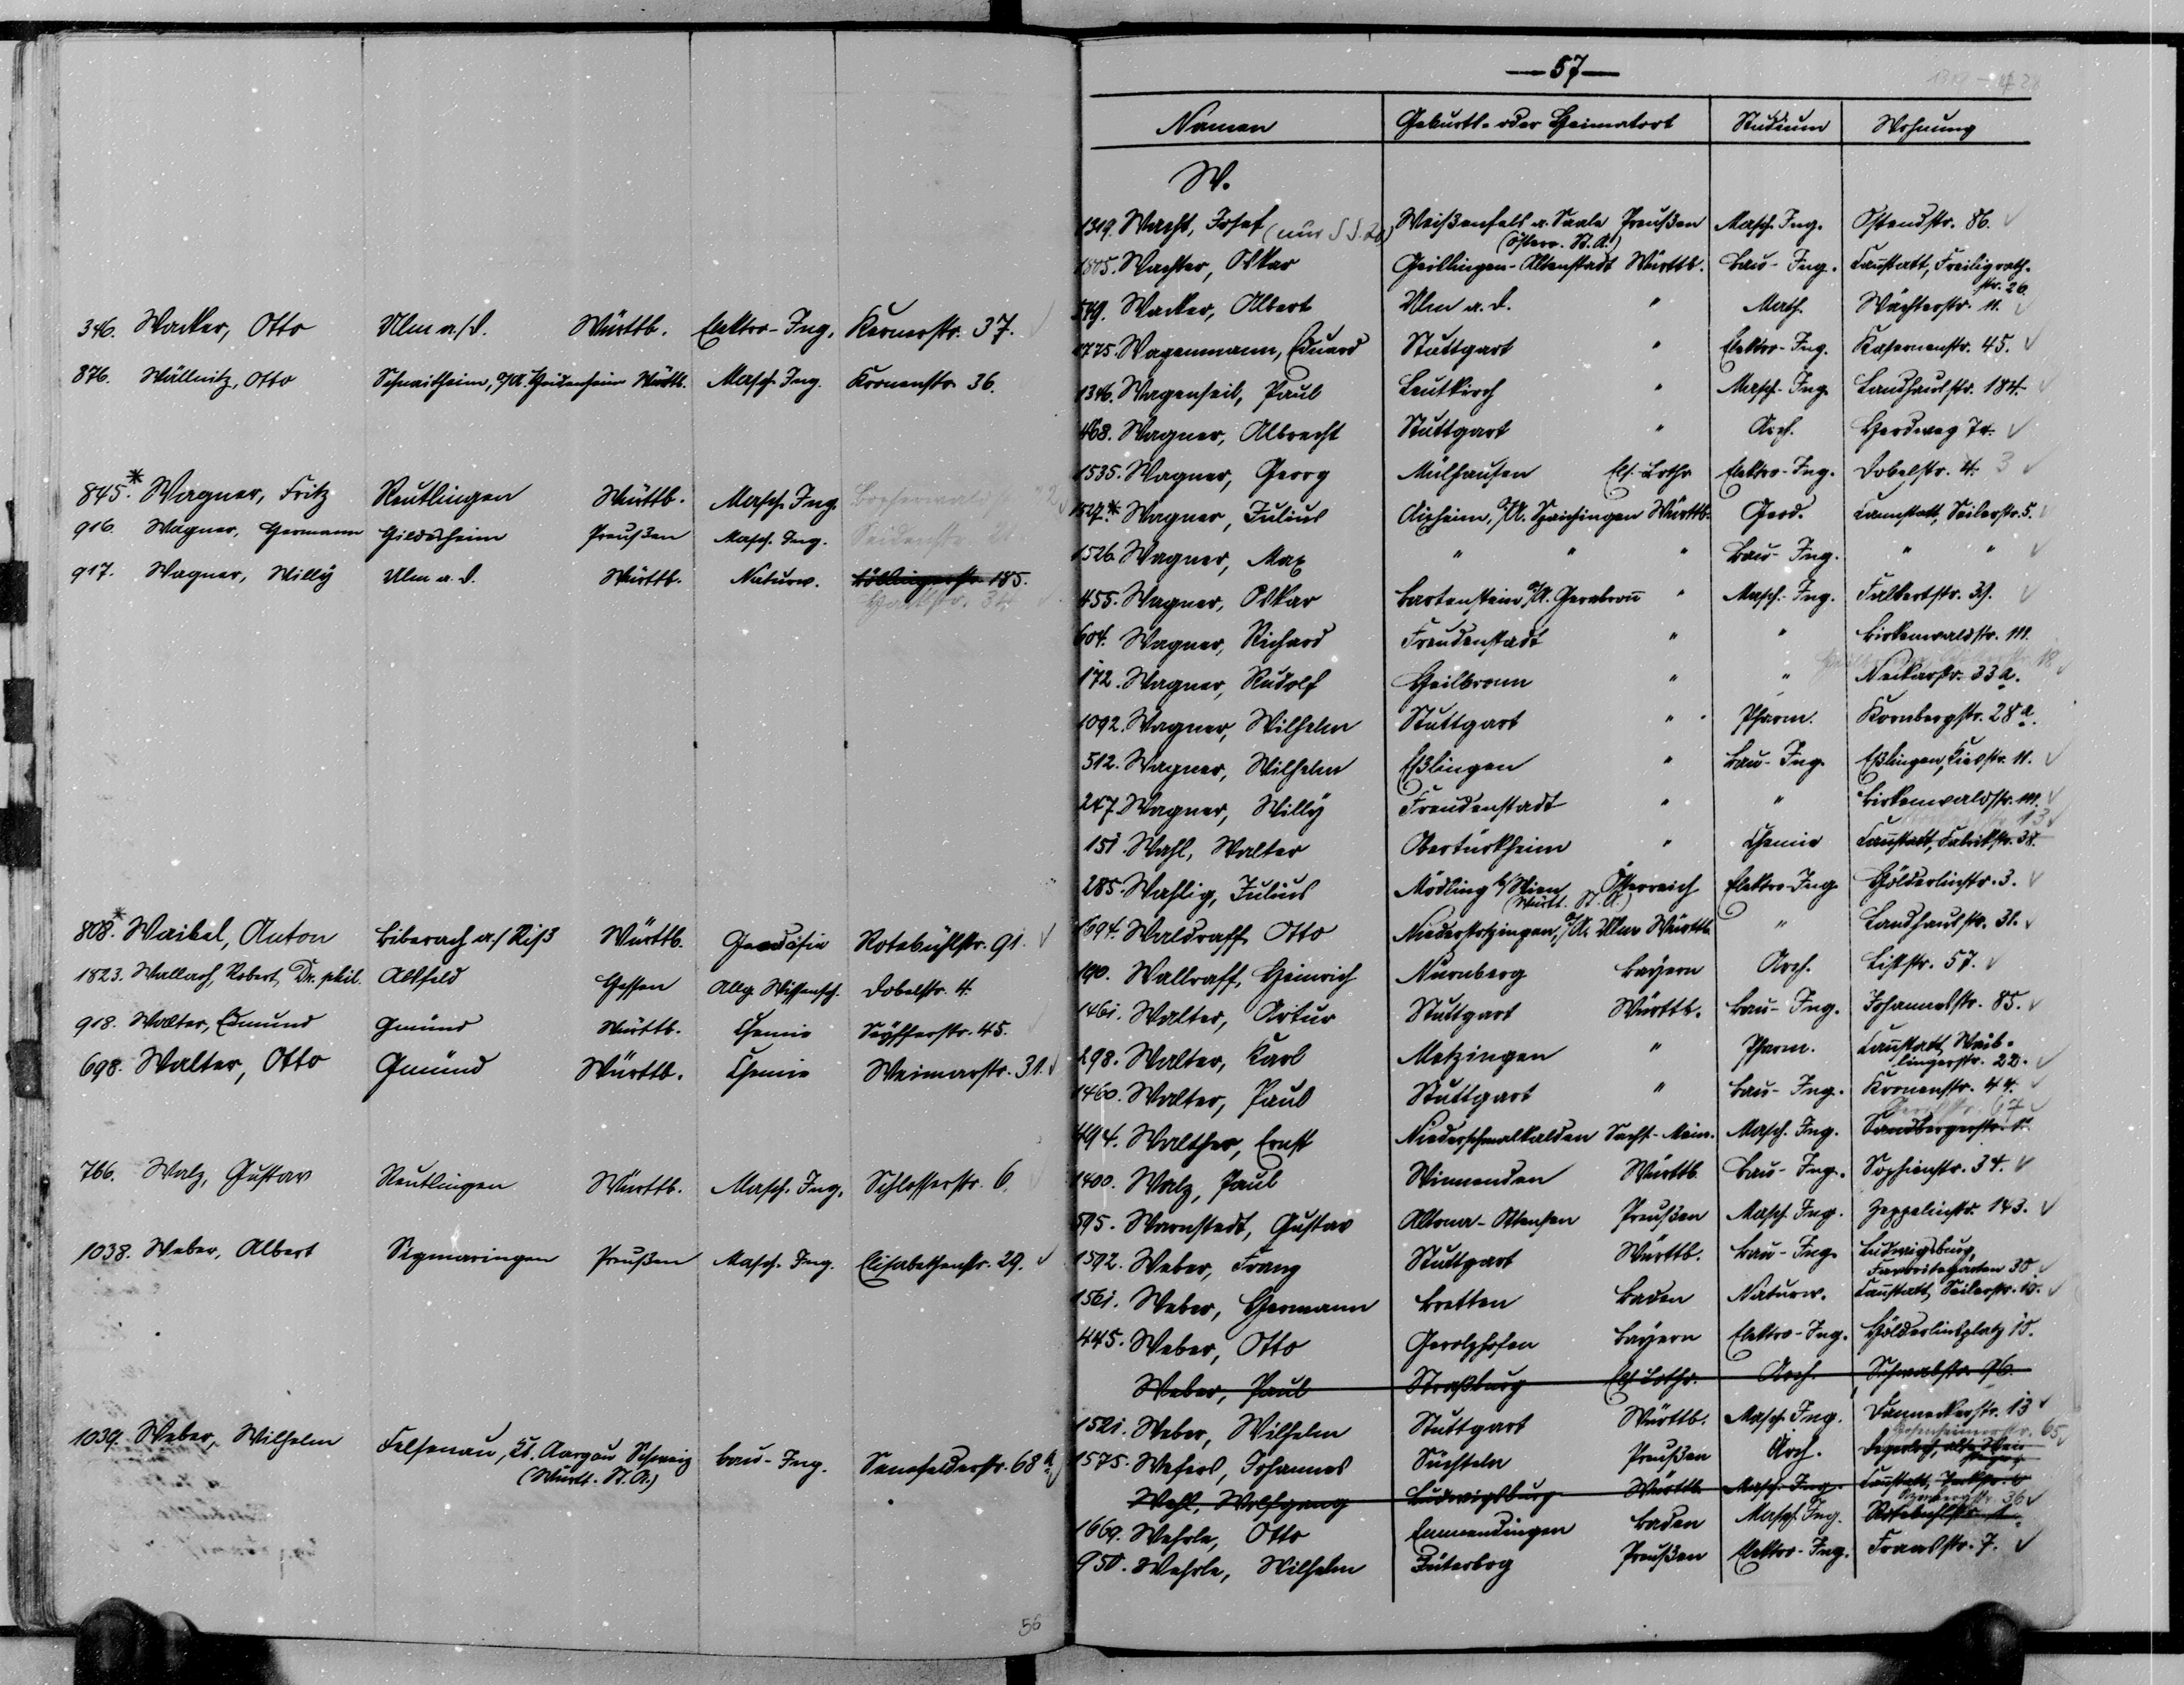 346. Wacker, Otto Ulm a/D. Württb. Elektro-Ing. Kernerstr. 37.
876. Wällnitz, Otto Schnaitheim, O/A. Heidenheim Württb. Masch. Ing. Kronenstr. 36.
845.* Wagner, Fritz Reutlingen Württb. Masch. Ing.
916. Wagner, Hermann Hildesheim Preußen Masch. Ing. Seidenstr.
917. Wagner, Willy Ulm a. D. Württb. Naturw. Böblingerstr. 185.
808.* Waibel, Anton Biberach a./Riß Württb. Geodäsie Rotebühlstr. 91. ✓
1823. Wallach, Robert, Dr. phil. Alsfeld Hessen Allg. Wissensch. Dobelstr. 4.
918. Walter, Edmund Gmünd Württb. Chemie Seyfferstr. 45.
698. Walter, Otto Gmünd Württb. Chemie Weimarstr. 31. ✓
766. Walz, Gustav Reutlingen Württb. Masch. Ing. Schlosserstr. 6.
1038. Weber, Albert Sigmaringen Preußen Masch. Ing. Elisabethenstr. 29. ✓
1039. Weber, Wilhelm Felsenau, Kt. Aargau Schweiz Bau-Ing. Senefelderstr. 68 a
(Württ. St. A.)
56
— 57 —
Namen Geburts- oder Heimatort Studium Wohnung
W.
1319. Wacht, Josef (nur S.S. 20) Weißenfels a. Saale Preußen Masch. Ing. Ostendstr. 86. ✓
(Österr. St. A.)
1805. Wachter, Oskar Geislingen-Altenstadt Württb. Bau-Ing. Cannstatt, Freiligrath-
str. 26.
549. Wacker, Albert Ulm a. D. " Math. Wächterstr. 11. ✓
1775. Wagenmann, Eduard Stuttgart " Elektro-Ing. Kasernenstr. 45. ✓
1346. Wagenseil, Paul Leutkirch " Masch-Ing. Landhausstr. 184. ✓
468. Wagner, Albrecht Stuttgart " Arch. Herdweg 74. ✓
1535. Wagner, Georg Mülhausen Els.-Lothr. Elektro-Ing. Dobelstr. 4. 3 ✓
1527.* Wagner, Julius Aixheim, O/A. Spaichingen Württb. Geod. Cannstatt, Seilerstr. 5.
1526. Wagner, Max " " " Bau-Ing. " " ✓
455. Wagner, Oskar Bartenstein O/A. Gerabronn " Masch.-Ing. Falkertstr. 39. ✓
604. Wagner, Richard Freudenstadt " " Birkenwaldstr. 111.
172. Wagner, Rudolf Heilbronn " " Neckarstr. 33a.
1092. Wagner, Wilhelm Stuttgart " Pharm. Kornbergstr. 28 a.
512. Wagner, Wilhelm Eßlingen " Bau-Ing. Eßlingen, Kiesstr. 11. ✓
247. Wagner, Willy Freudenstadt " " Birkenwaldstr. 111. ✓
151. Wahl, Walter Obertürkheim " Chemie Cannstatt, Fabrikstr. 38.
285. Wahlig, Julius Mödling b/Wien Österreich Elektro-Ing. Hölderlinstr. 3. ✓
(Württ. St. A.)
694. Waldraff, Otto Niederstotzingen, O/A. Ulm Württb. " Landhausstr. 31. ✓
190. Wallraff, Heinrich Nürnberg Bayern Arch. Liststr. 57. ✓
1461. Walter, Artur Stuttgart Württb. Bau-Ing. Johannesstr. 85. ✓
298. Walter, Karl Metzingen " Pharm. Cannstatt, Waib-
lingerstr. 22. ✓
1460. Walter, Paul Stuttgart " Bau-Ing. Kronenstr. 44. ✓
494. Walther, Ernst Niederschmalkalden Sachs.-Mein. Masch. Ing. Sandbergerstr.
1400. Walz, Paul Winnenden Württb. Bau-Ing. Sophienstr. 34. ✓
595. Warnstedt, Gustav Altona-Ottensen Preußen Masch. Ing. Zeppelinstr. 143. ✓
1592. Weber, Franz Stuttgart Württb. Bau-Ing. Ludwigsburg,
Favoritegarten 30 ✓
1561. Weber, Hermann Bretten Baden Naturw. Cannstatt, Seilerstr. 10. ✓
445. Weber, Otto Gerolzhofen Bayern Elektro-Ing. Hölderlinsplatz 10.
Weber, Paul Straßburg Els. Lothr. Arch. Schwabstr. 96.
1521. Weber, Wilhelm Stuttgart Württb. Masch. Ing. Danneckerstr. 13 ✓
1575. Wefers, Johannes Süchteln Preußen Arch. Degerloch, alte Wein-
steige
Wahl, Wolfgang Ludwigsburg Württb. Masch-Ing. Cannstatt,
1669. Wehrle, Otto Emmendingen Baden Masch. Ing. Rotebühlstr.
950. Wehrle, Wilhelm Jüterbog Preußen Elektro-Ing. Traubstr. 7. ✓